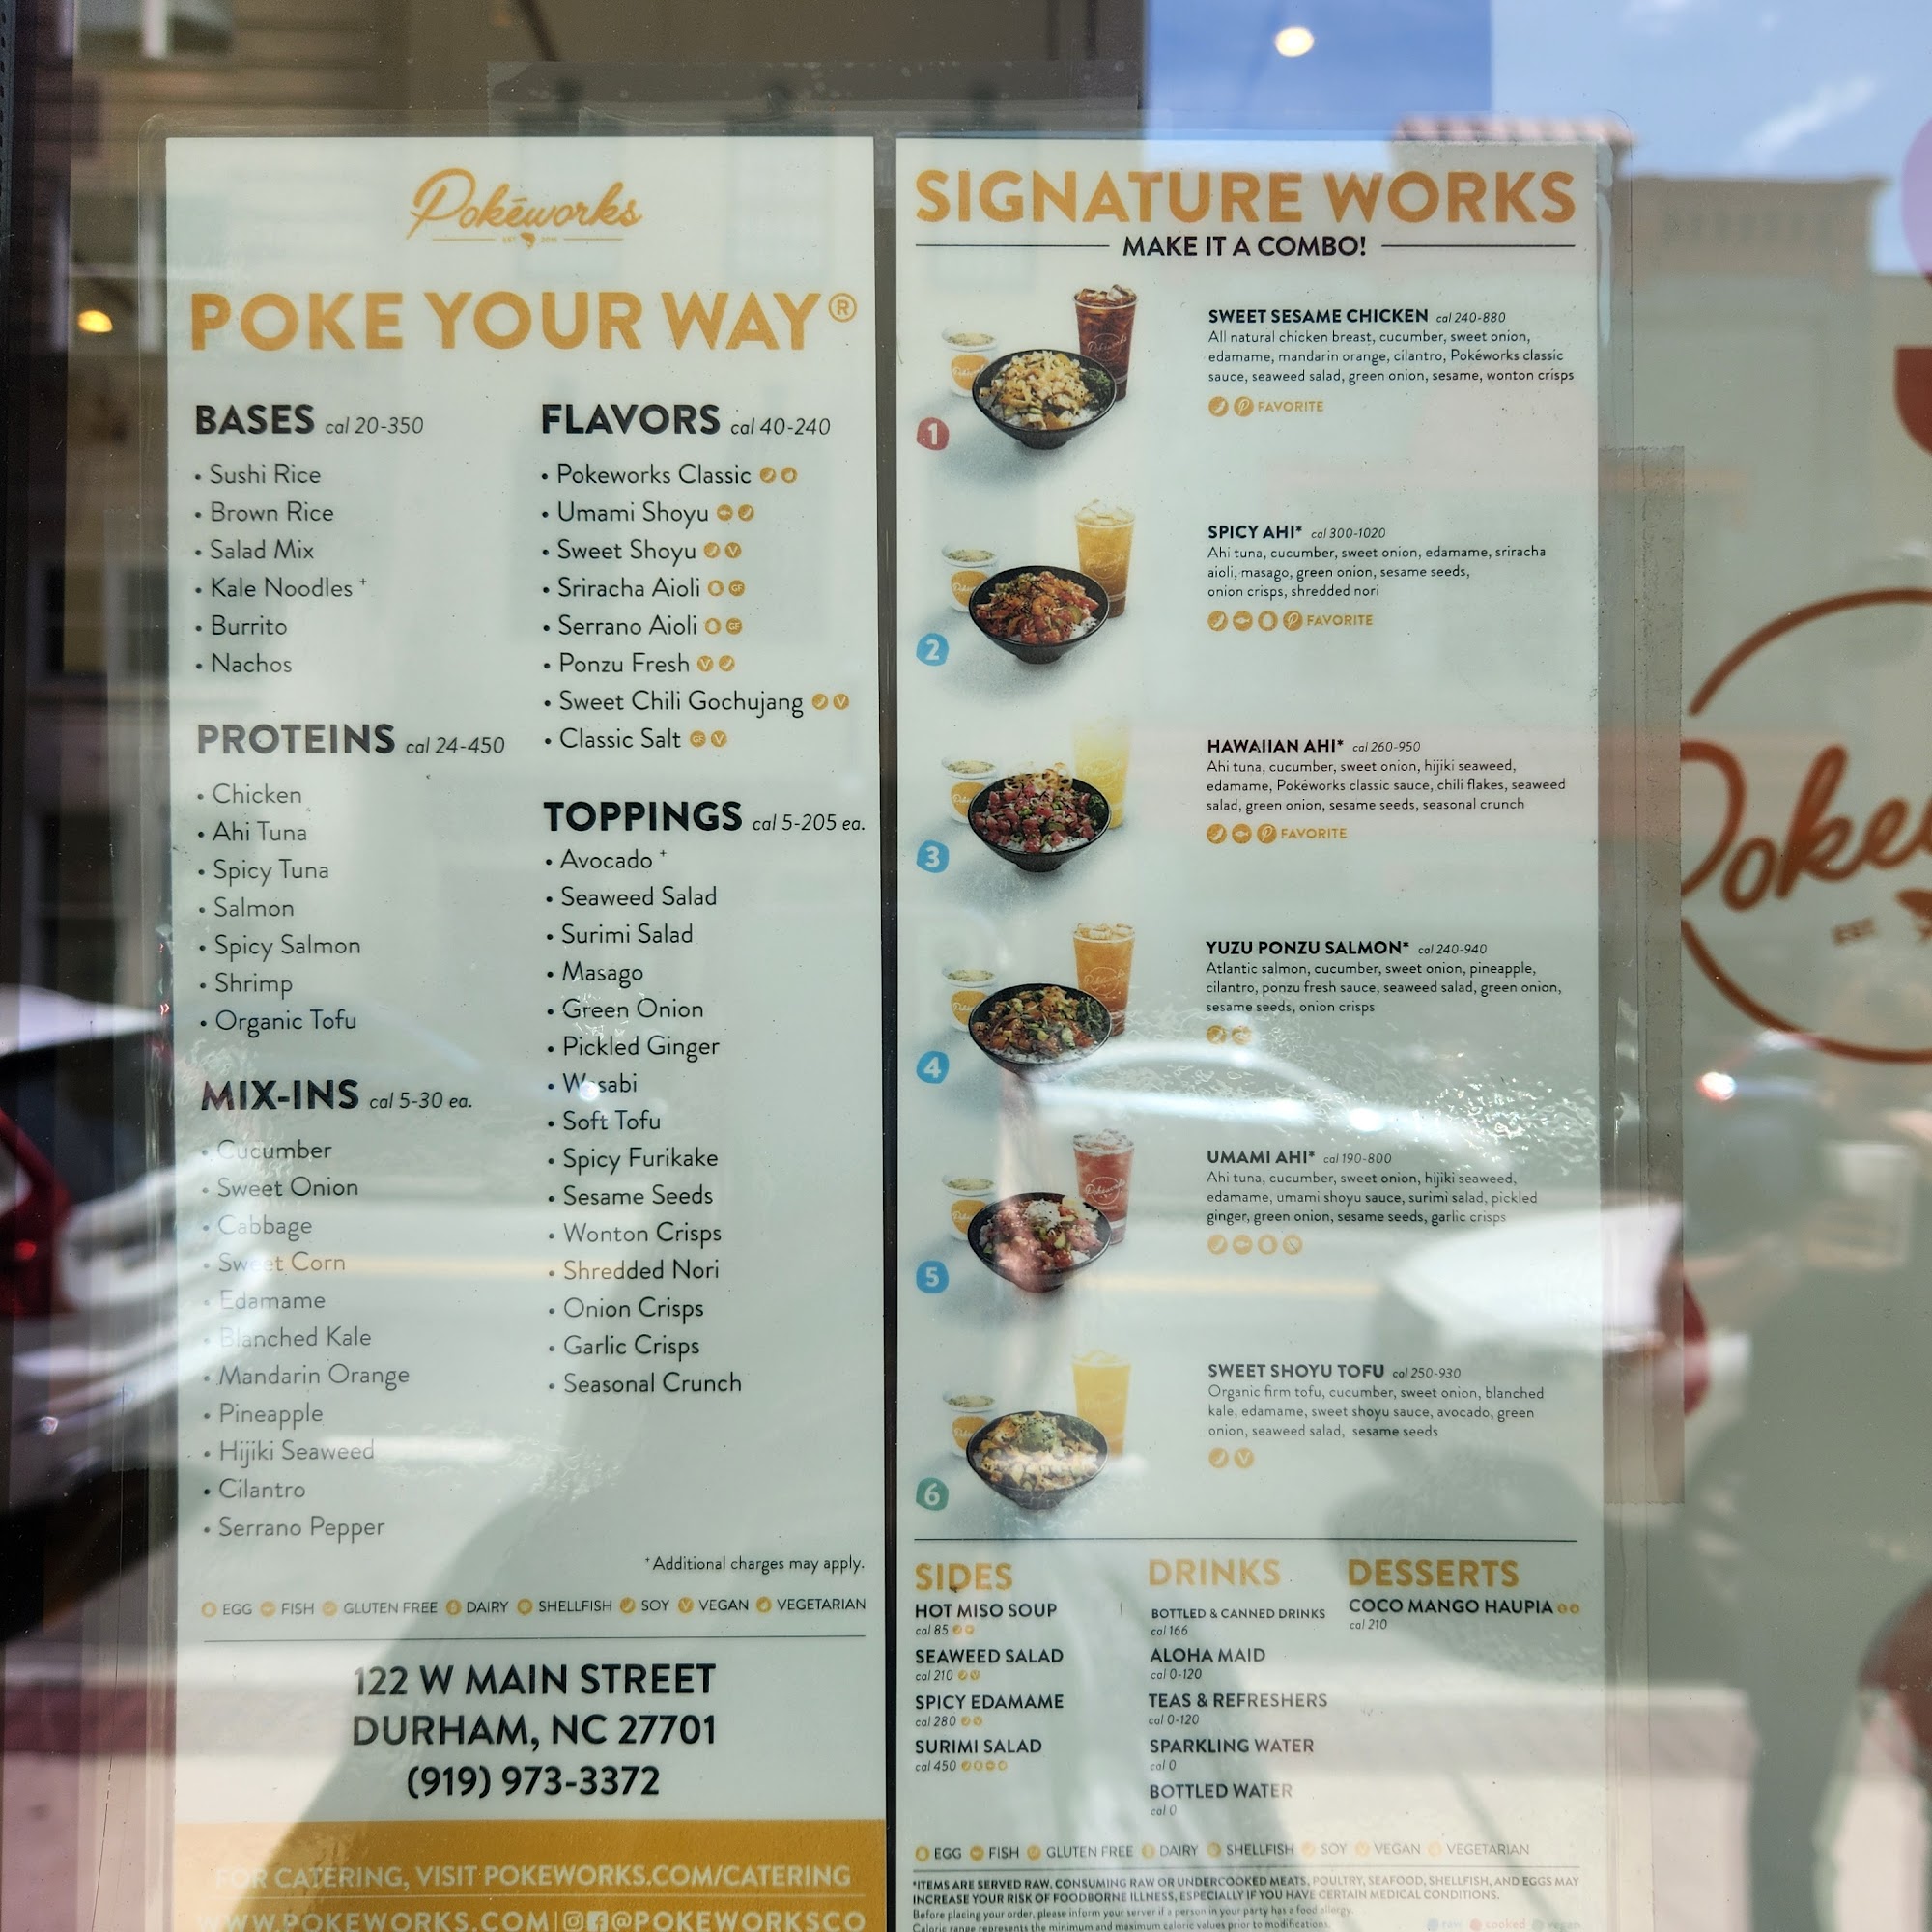 Pokéworks
EST 2015
POKE YOUR WAY®
BASES cal 20-350
• Sushi Rice
• Brown Rice
• Salad Mix
• Kale Noodles +
• Burrito
• Nachos
PROTEINS cal 24-450
• Chicken
• Ahi Tuna
• Spicy Tuna
• Salmon
• Spicy Salmon
• Shrimp
• Organic Tofu
MIX-INS cal 5-30 ea.
• Cucumber
• Sweet Onion
• Cabbage
• Sweet Corn
• Edamame
• Blanched Kale
• Mandarin Orange
• Pineapple
• Hijiki Seaweed
• Cilantro
• Serrano Pepper
FLAVORS cal 40-240
• Pokeworks Classic
• Umami Shoyu
• Sweet Shoyu V
• Sriracha Aioli GF
• Serrano Aioli GF
• Ponzu Fresh V
• Sweet Chili Gochujang V
• Classic Salt GF V
TOPPINGS cal 5-205 ea.
• Avocado +
• Seaweed Salad
• Surimi Salad
• Masago
• Green Onion
• Pickled Ginger
• Wasabi
• Soft Tofu
• Spicy Furikake
• Sesame Seeds
• Wonton Crisps
• Shredded Nori
• Onion Crisps
• Garlic Crisps
• Seasonal Crunch
+Additional charges may apply.
EGG FISH GLUTEN FREE DAIRY SHELLFISH SOY VEGAN VEGETARIAN
122 W MAIN STREET
DURHAM, NC 27701
(919) 973-3372
FOR CATERING, VISIT POKEWORKS.COM/CATERING
WWW.POKEWORKS.COM | @POKEWORKSCO
SIGNATURE WORKS
MAKE IT A COMBO!
1
SWEET SESAME CHICKEN cal 240-880
All natural chicken breast, cucumber, sweet onion,
edamame, mandarin orange, cilantro, Pokéworks classic
sauce, seaweed salad, green onion, sesame, wonton crisps
FAVORITE
2
SPICY AHI* cal 300-1020
Ahi tuna, cucumber, sweet onion, edamame, sriracha
aioli, masago, green onion, sesame seeds,
onion crisps, shredded nori
FAVORITE
3
HAWAIIAN AHI* cal 260-950
Ahi tuna, cucumber, sweet onion, hijiki seaweed,
edamame, Pokéworks classic sauce, chili flakes, seaweed
salad, green onion, sesame seeds, seasonal crunch
FAVORITE
4
YUZU PONZU SALMON* cal 240-940
Atlantic salmon, cucumber, sweet onion, pineapple,
cilantro, ponzu fresh sauce, seaweed salad, green onion,
sesame seeds, onion crisps
5
UMAMI AHI* cal 190-800
Ahi tuna, cucumber, sweet onion, hijiki seaweed,
edamame, umami shoyu sauce, surimi salad, pickled
ginger, green onion, sesame seeds, garlic crisps
6
SWEET SHOYU TOFU cal 250-930
Organic firm tofu, cucumber, sweet onion, blanched
kale, edamame, sweet shoyu sauce, avocado, green
onion, seaweed salad, sesame seeds
V
SIDES
HOT MISO SOUP
cal 85
SEAWEED SALAD
cal 210
SPICY EDAMAME
cal 280
SURIMI SALAD
cal 450
DRINKS
BOTTLED & CANNED DRINKS
cal 166
ALOHA MAID
cal 0-120
TEAS & REFRESHERS
cal 0-120
SPARKLING WATER
cal 0
BOTTLED WATER
cal 0
DESSERTS
COCO MANGO HAUPIA
cal 210
EGG FISH GLUTEN FREE DAIRY SHELLFISH SOY VEGAN VEGETARIAN
*ITEMS ARE SERVED RAW, CONSUMING RAW OR UNDERCOOKED MEATS, POULTRY, SEAFOOD, SHELLFISH, AND EGGS MAY
INCREASE YOUR RISK OF FOODBORNE ILLNESS, ESPECIALLY IF YOU HAVE CERTAIN MEDICAL CONDITIONS.
Before placing your order, please inform your server if a person in your party has a food allergy.
Caloric range represents the minimum and maximum caloric values prior to modifications.
raw cooked vegan
Poke
EST.